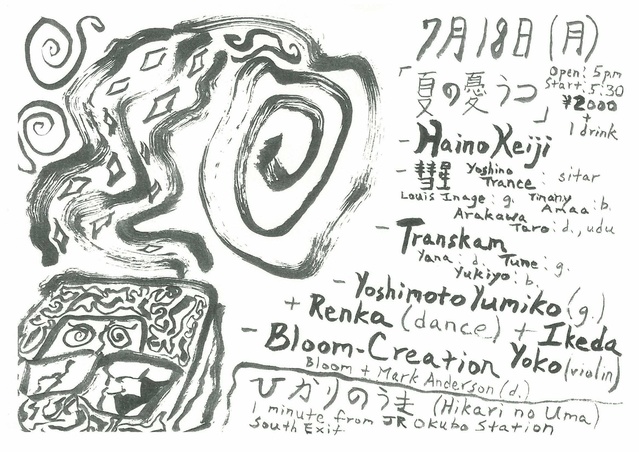 7月18日(月)
「夏の憂うつ」
Open: 5pm
Start: 5:30
¥2000
+
1 drink
- Haino Keiji
- 彗星 Yoshino Trance: sitar
Louis Inage: g. Tinany Amaa: b.
Arakawa Taro: d., udu
- Transkam
Yana: d. Tune: g.
Yukiyo: b.
- Yoshimoto Yumiko (g.)
+ Renka (dance) + Ikeda Yoko (violin)
- Bloom-Creation
Bloom + Mark Anderson (d.)
ひかりのうま (Hikari no Uma)
1 minute from JR Okubo Station
South Exit